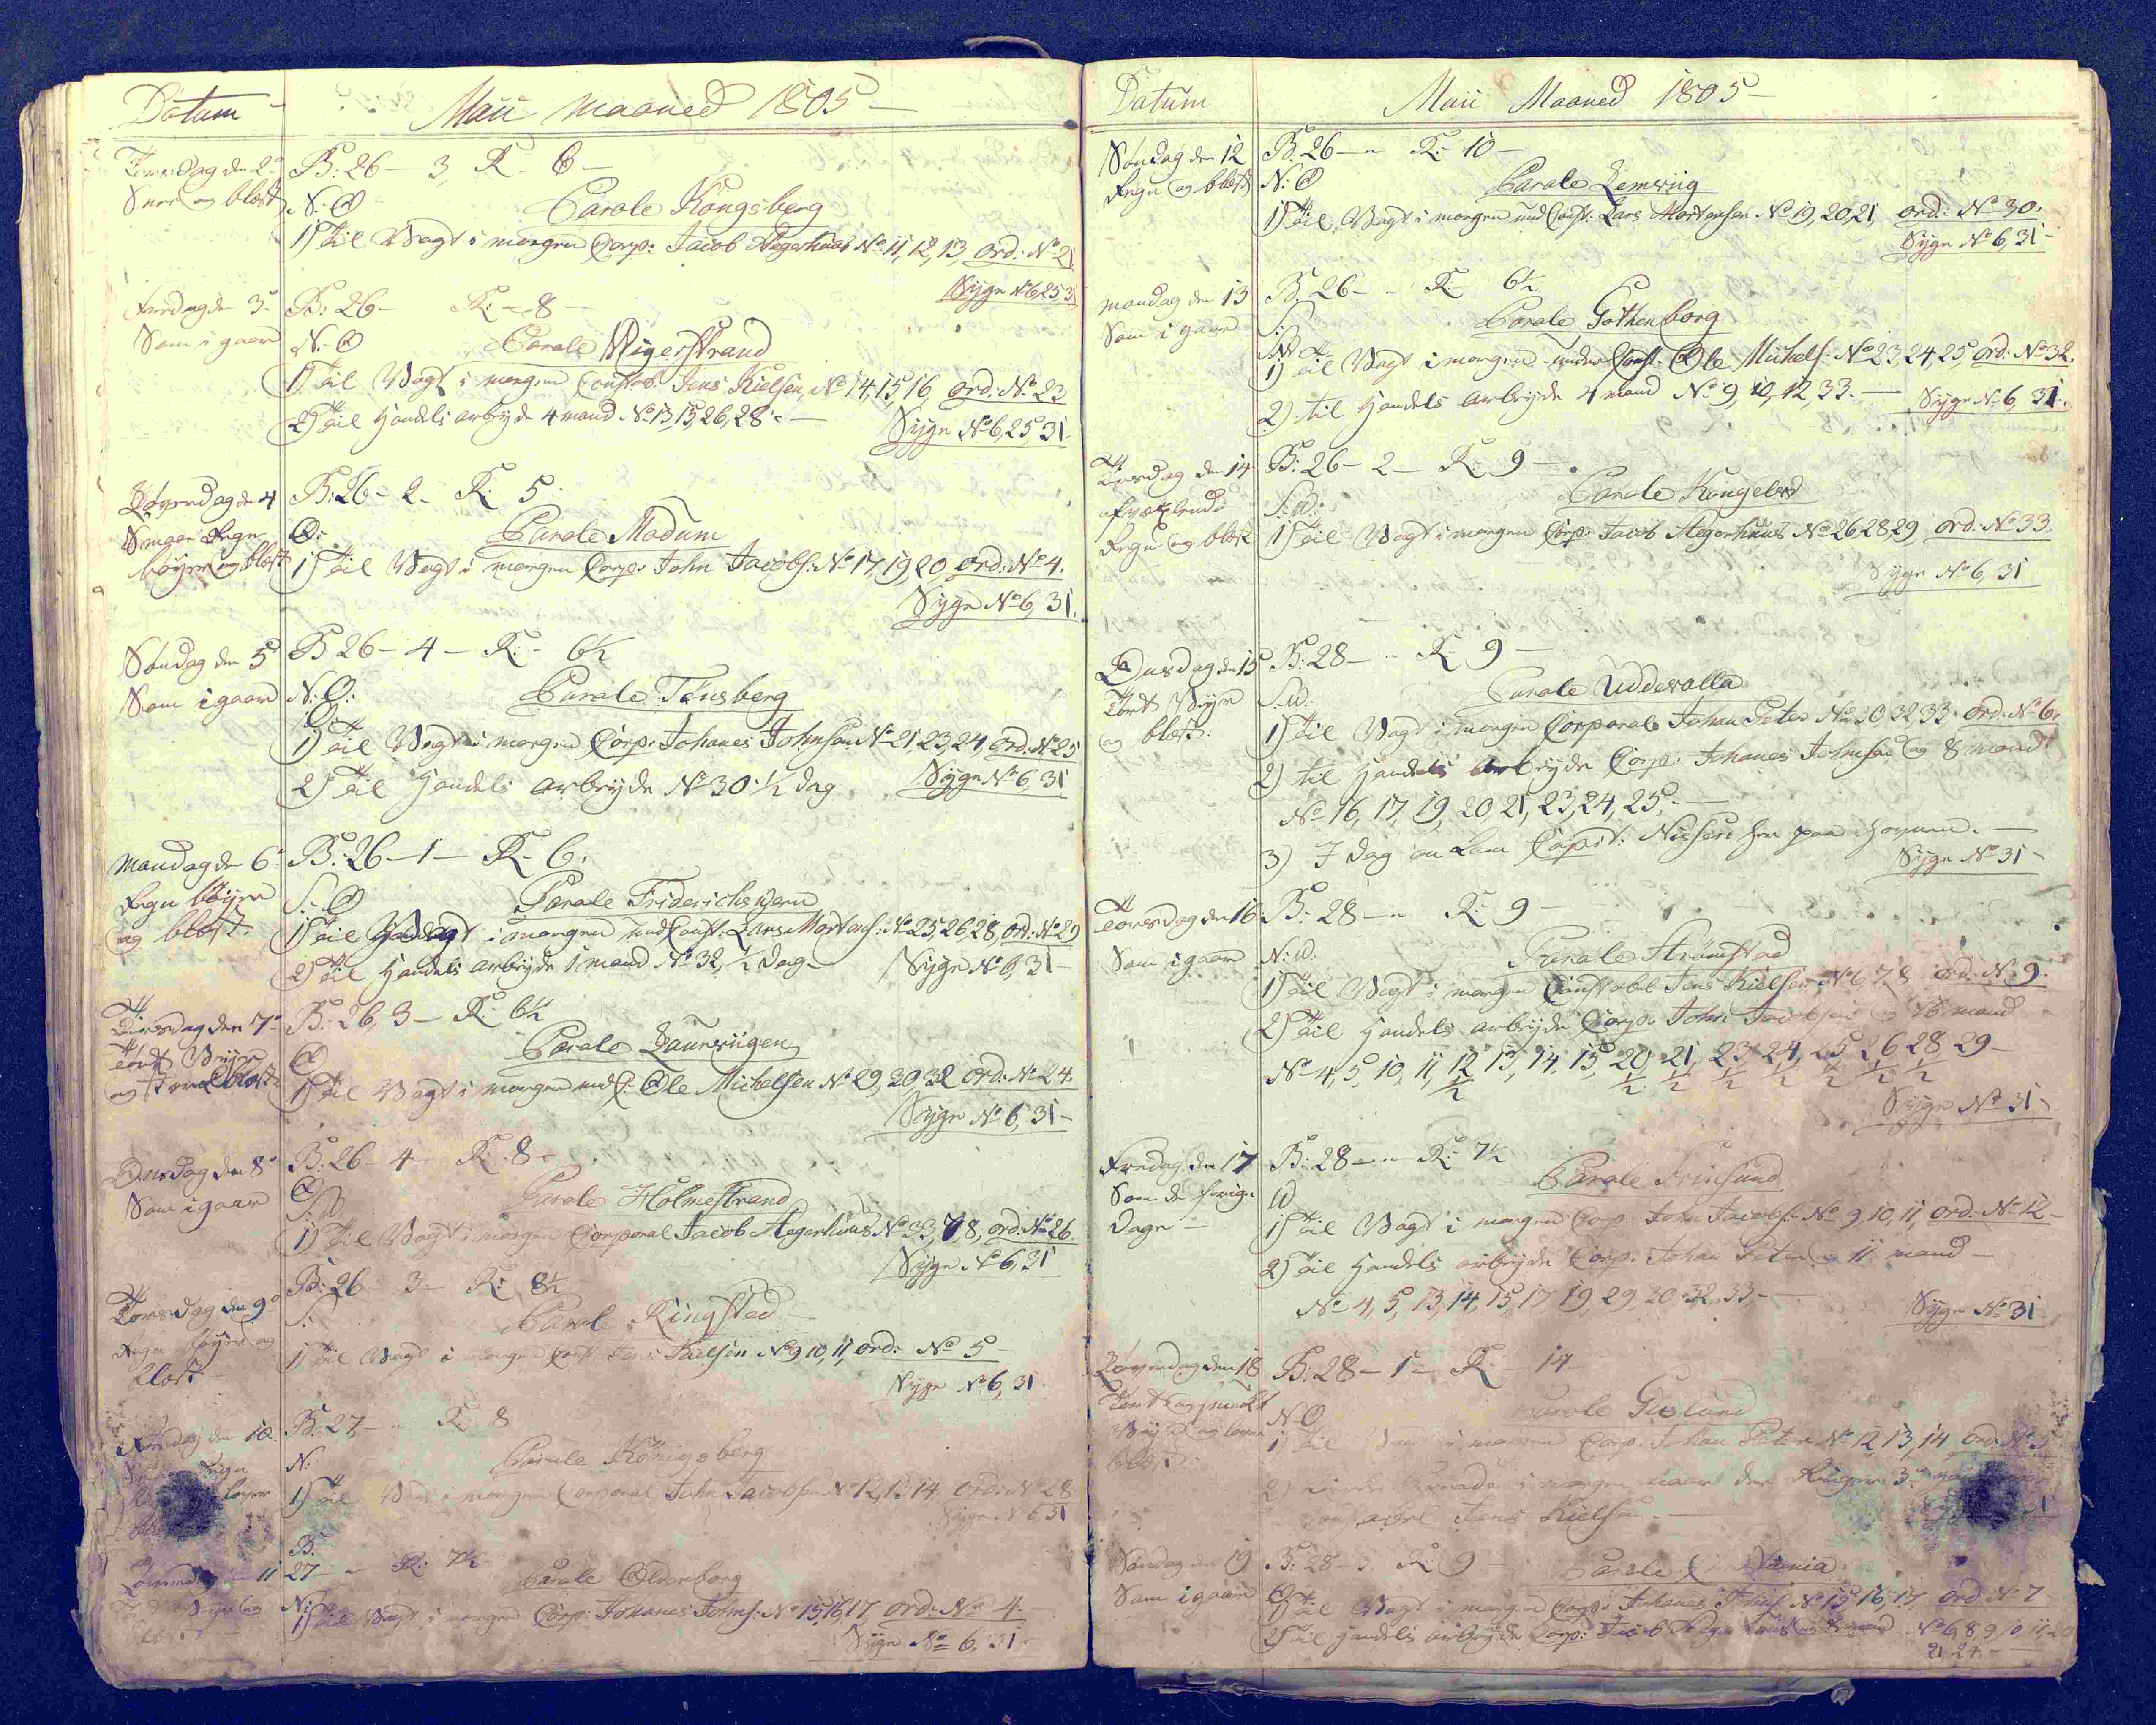 Datum
Maii maaned 1805
Torsdag den 2
Snee og blæst
B: 26 - 3 R. 6 -
N: O
Parole Kongsberg
1) Til Vagt i morgen Corp: Jacob Aegerhuus No 11, 12, 13, ord: No 21
Syge No 6, 25, 31
Fredag den 3
Som i gaar
B: 26 - R: - 8 -
N: O
Parole Rigerstrand
1) Til Vagt i morgen Constab: Jens Kielsen, No 14, 15, 16, ord: No 22
2) Til Handels arbeyde 4 mand No 13, 15, 26, 28 -
Syge No 6, 25, 31
Løverdag den 4
Smaae Regn
böyer og blæst
B: 26 - 2 - R: 5
O:
Parole Modum
1) Til Vagt i morgen Corp: John Jacobs: No 17, 19, 20, ord: No 4.
Syge No 6, 31.
Søndag den 5
Som i gaar
B 26 - 4 - R. - 6½
N: O:
O.
Parole Tønsberg
1) Til Vagt i morgen Corp: Johanes Johnsen No 21, 23, 24, ord: No 25
2) Til Handels arbeyde No 30 ½ dag
Syge No 6, 31
Mandag den 6
Regn böyer
og blæst.
B: 26 - 1 - R. 6.
S. O
Parole Friderichswern
1) Til Vagt i morgen und Const: Lars Mortens: No 25, 26, 28, ord: No 29
2) Til Handels arbeyde 1 mand No 32, ½ dag -
Syge No 6, 31 -
Tirsdag den 7
tört Veyr
og stærk blæst
B: 26, 3 - R. 6½
O
Parole Laurwiigen
1) Til Vagt i morgen und C: Ole Michelsen No 29, 30, 32 ord: No 24.
Syge No 6, 31 -
Onsdag den 8
Som i gaar
B: 26 - 4 R. 8 -
O
Parole Holmestrand
1) Til Vagt i morgen Corporal Jacob Aegerhuus No 33, 7, 8, ord: No 26
Syge No 6, 31
Torsdag den 9
Regn böyer og
blæst
B: 26 3 - R: 8½
S.
Parole Ringsted
1) Til Vagt i morgen Const Jens Kielsen No 9, 10, 11, ord: No 5 -
Syge No 6, 31.
Fredag den 10
B: 27 - " R 8
N:
Parole Königsberg
1) Til Vagt i morgen Corporal John Jacobsen No 12, 13 14 ord: No 28
Syge No 6 31
Löverdag den 11
B.
27 - " R: 7½
N:
Parole Oldenborg
1) Til Vagt i morgen Corp: Johanes Johns: No 15, 16, 17, ord: No 4
Syge No 6, 31.
Datum
Maii Maaned 1805 -
Søndag den 12
Regn og blæst
B. 26 - " R: 10 -
N: O
Parole Lemwiig
1) Til Vagt i morgen und Const: Lars Mortensen No 19, 20, 21, ord: No 30.
Syge No 6, 31 -
Mandag den 13
Som i gaar
B. 26 - - R 6½
S:
Parole Gothenborg
1) Til Vagt i morgen under Const: Ole Michels: No 23, 24, 25, ord: No 32.
2) til Handels arbeyde 4 mand No 9, 10, 12, 33. -
Syge No 6, 31.
Tirsdag den 14
afvexlende
Regn og blæst
B: 26 - 2 - R: 9 -
S: W:
Parole Kongelf
1) Til Vagt i morgen Corp: Jacob Aegerhuus No 26 28 29, ord. No 33
Syge No 6, 31
Onsdag den 15
Tört Veyr
og blæst.
B: 28 - " R 9 -
S. W:
Parole Uddewalla
1) Til Vagt i morgen Corporal Johan Peter No 30 32, 33. ord: No 6.
2) til Handels arbeyde Corp: Johanes Johnsen og 8 mand
No 16, 17, 19, 20 21, 23, 24, 25. -
3) I dag an kom Capit: Nielsen her paa havnen. -
Syge No 31 -
Torsdag den 16
Som i gaar
B: 28 - " R: 9 -
N: W.
Parole Strømstad
1) Til Vagt i morgen Constabel Jens Kielsen No 6, 7, 8 ord: No 9.
2) Til Handels arbeyde Corp: John Jacobsen og 16 mand
No 4, 5, 10, 11, 12, 13, 14, 15, 20, 21, 23, 24, 25 26 28 29 -
½ ½ ½ ½ ½ ½ ½ ½
Syge No 31 -
Fredag den 17
Som de forige
Dage -
B: 28 - " R: 7½
W
Parole
1) Til Vagt i morgen Corp. John Jacobs: No 9, 10, 11, ord: No 12 -
2) Til Handels arbeyde Corp: Johan Peter og 11 mand -
No 4, 5, 13, 14, 15, 17 19, 29 30 32, 33. -
Syge No 31
Løverdag den 18
B: 28 - 1 - R - 14
N O
Parole
1) Til Vagt i morgen Corp: Johan Peter No 12 13, 14 ord: No
2) Parade i morgen naar der Ringes 3de gang
Constabel Jens Kielsen. -
Søndag den 19
Som i gaar
B: 28 - 3. R: 9 -
O
Parole
1) Til Vagt i morgen Corp: Johanes Johns No 15 16, 17, ord: No 7
2) Til Handels arbeyde Corp: Jacob Aegerhuus og mand No 6, 8 9 10 11, 20
21, 24. -